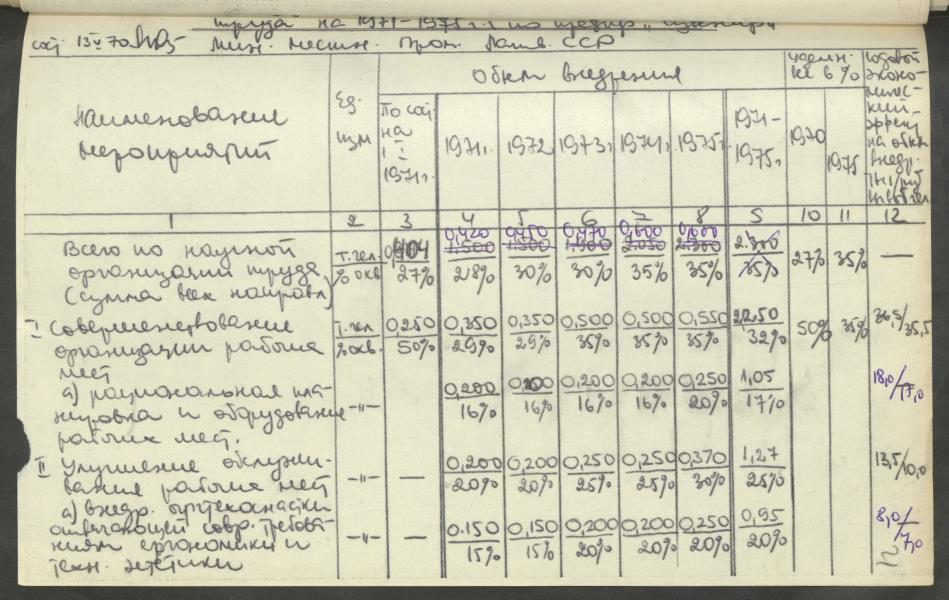 труда на 1971-1975 г.г по
Мин. местн. пром. Латв. ССР
Наименование
мероприятий
Ед.
изм
По сост.
на
1971г.
Объем внедрения
1971г. 1972 1973г 1974г. 1975г
1971-
1975г
в %
1970
1975
Годовой
эконо-
мичес-
кий
эффект
на объем
внедр.
1 2 3 4 5 6 7 8 9 10 11 12
Всего по научной
организации труда
(сумма всех направл.)
т.чел.
% охв
27%
0,420 0,450 0,470 0,600
1.500 1.500 2.050 2.300 2.300
28% 30% 30% 35% 35% 35%
27% 35% —
I Совершенствование
организации рабочих
мест
т.чел
% охв.
0,250 0,350 0,350 0,500 0,500 0,550 2.250
50% 29% 29% 35% 35% 35% 32%
50% 35% 36,5/35,5
а) рациональная пла-
нировка и оборудование
рабочих мест.
-"-
0,200 0,200 0,200 0,200 0,250 1,05
16% 16% 16% 16% 20% 17%
18,0/17,0
II Улучшение обслужи-
вания рабочих мест
-"- —
0,200 0,200 0,250 0,250 0,370 1,27
20% 20% 25% 25% 30% 25%
13,5/10,0
а) внедр. оргтехоснастки
отвечающей совр. требова-
ниям эргономики и
техн. эстетики
-"- —
0.150 0,150 0,200 0,200 0,250 0,95
15% 15% 20% 20% 20% 20%
8,0/7,0